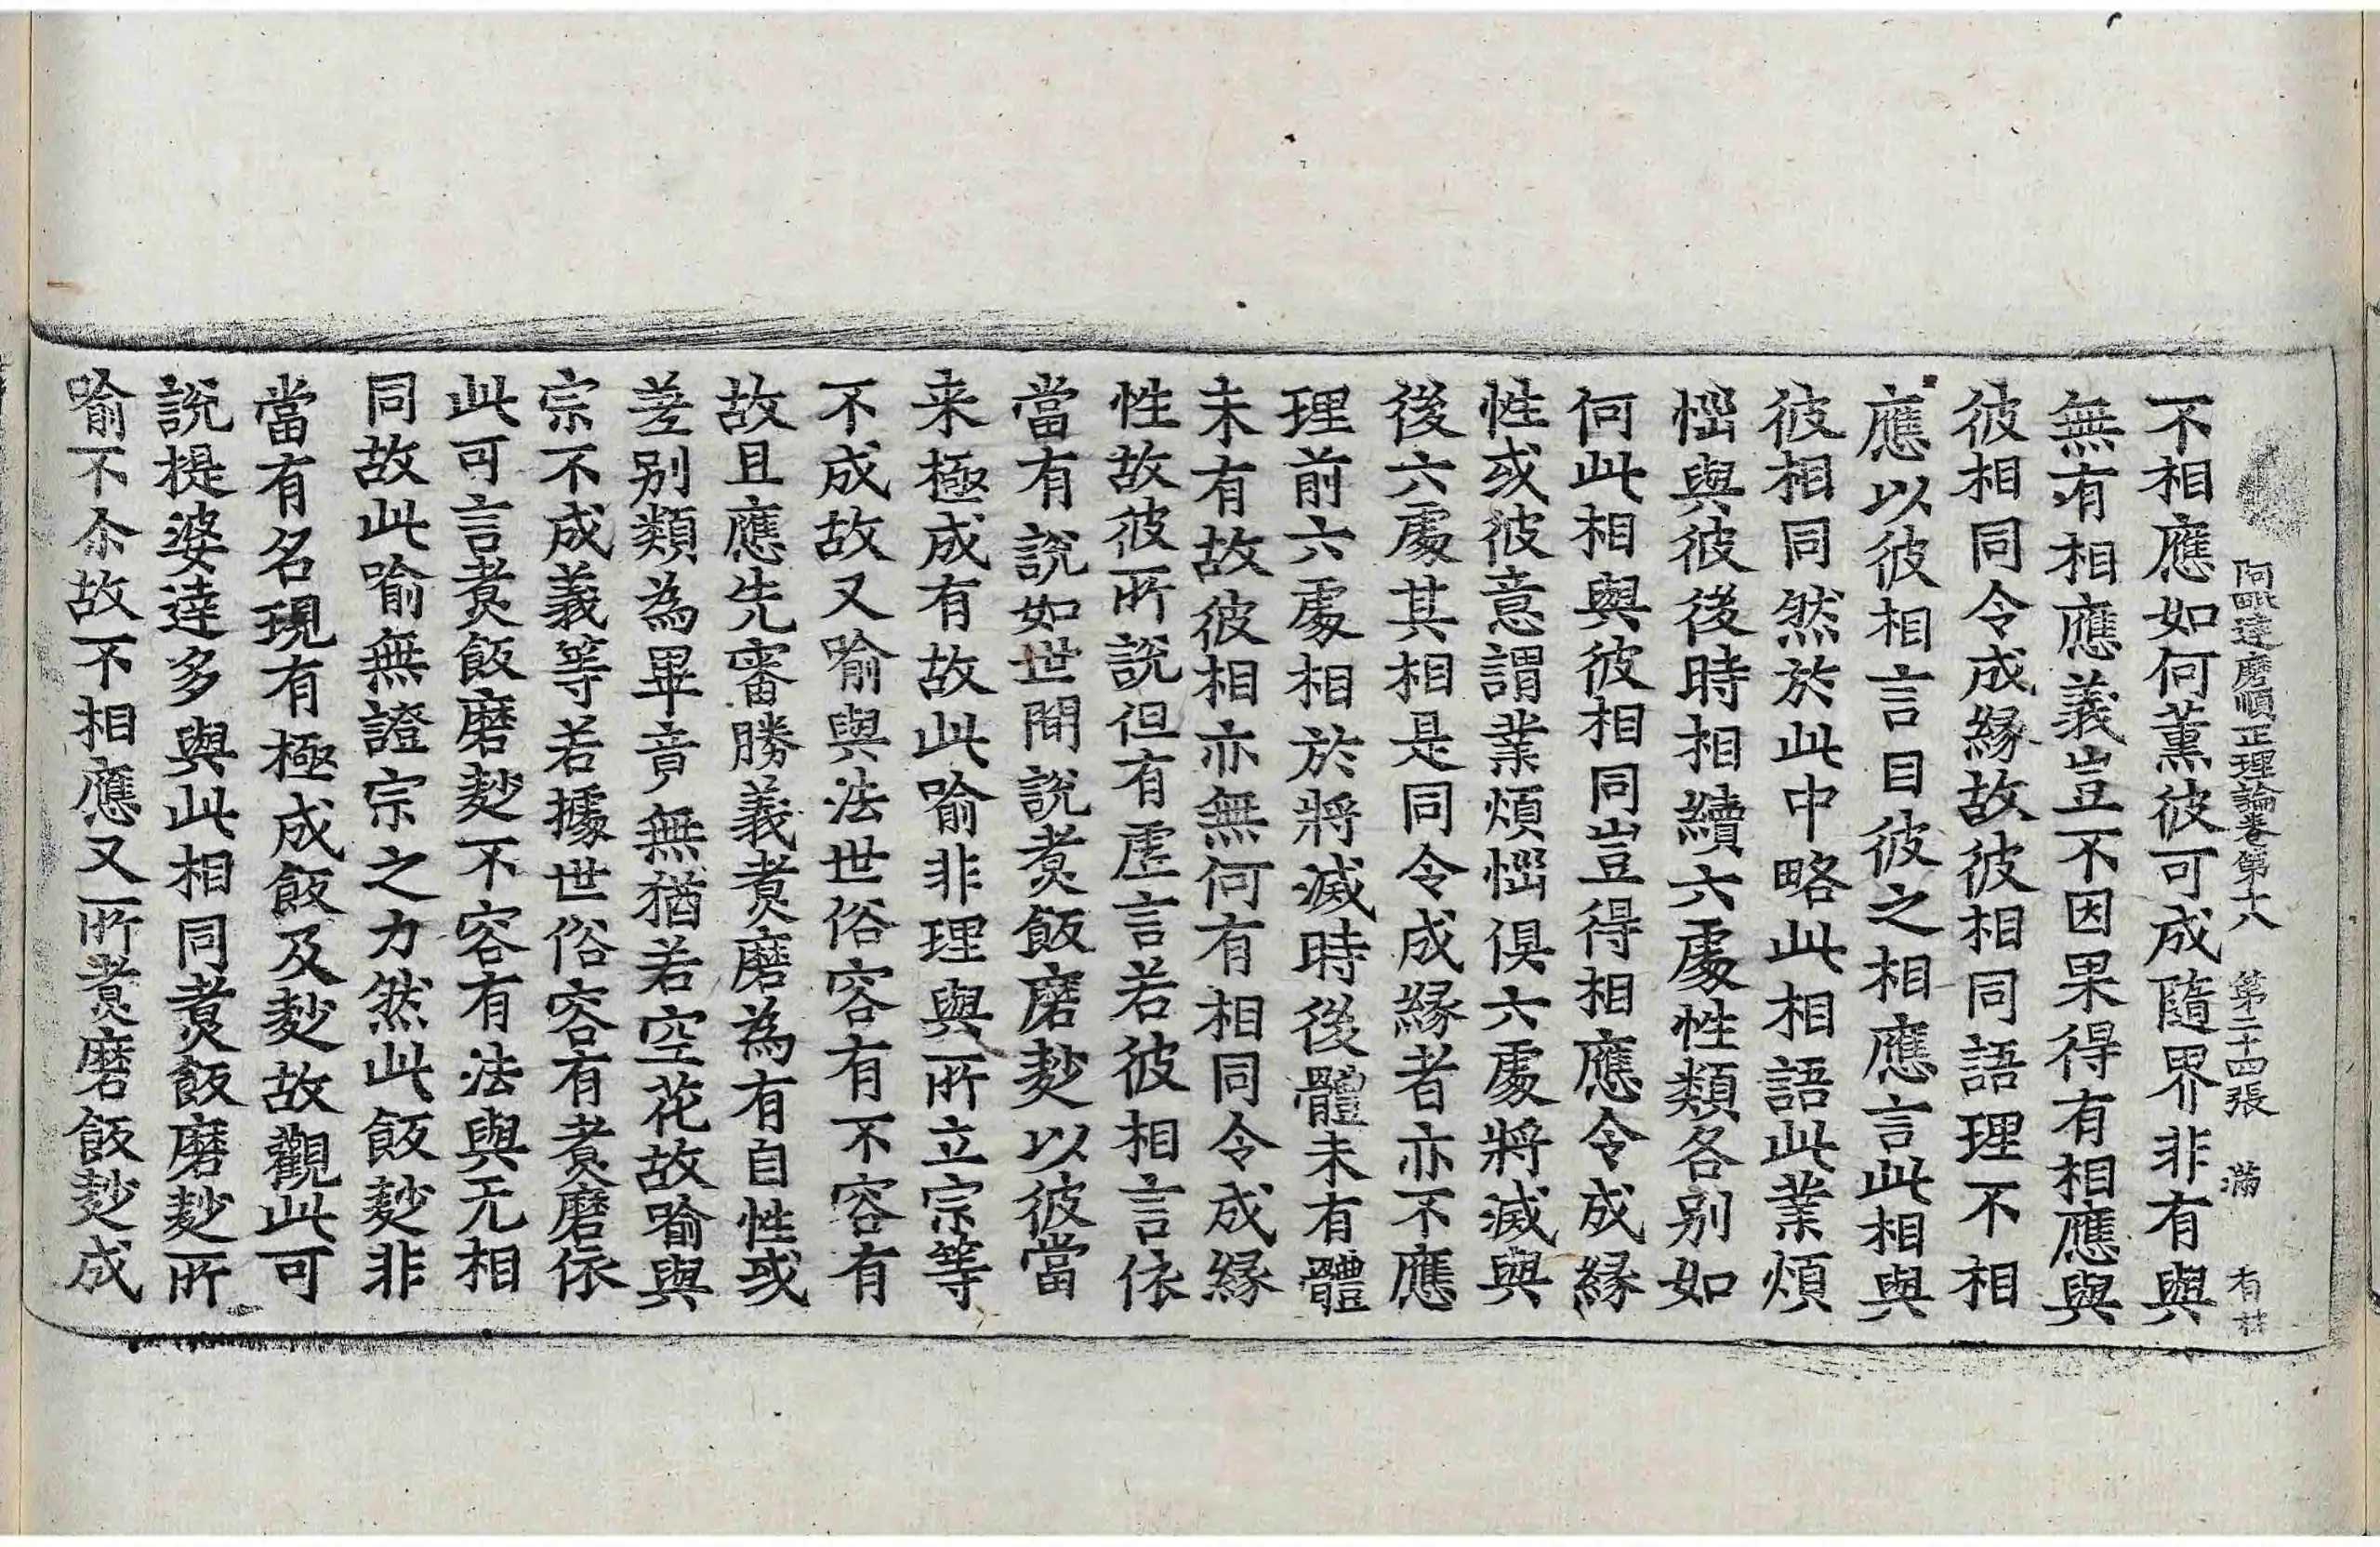 阿毗達磨順正理論卷第十八　第二十四張　滿　有林
不相應如何薰彼可成隨界非有與
無有相應義豈不因果得有相應與
彼相同令成緣故彼相同語理不相
應以彼相言目彼之相應言此相與
彼相同然於此中略此相語此業煩
惱與彼後時相續六處性類各別如
何此相與彼相同豈得相應令成緣
性或彼意謂業煩惱俱六處將滅與
後六處其相是同令成緣者亦不應
理前六處相於將滅時後體未有體
未有故彼相亦無何有相同令成緣
性故彼所說但有虛言若彼相言依
當有說如世間說煑飯磨麨以彼當
来極成有故此喻非理與所立宗等
不成故又喻與法世俗容有不容有
故且應先審勝義煑磨為有自性或
差別類為畢竟無猶若空花故喻與
宗不成義等若據世俗容有煑磨依
此可言煑飯磨麨不容有法與无相
同故此喻無證宗之力然此飯麨非
當有名現有極成飯及麨故觀此可
說提婆達多與此相同煑飯磨麨所
喻不尒故不相應又所煑磨飯麨成